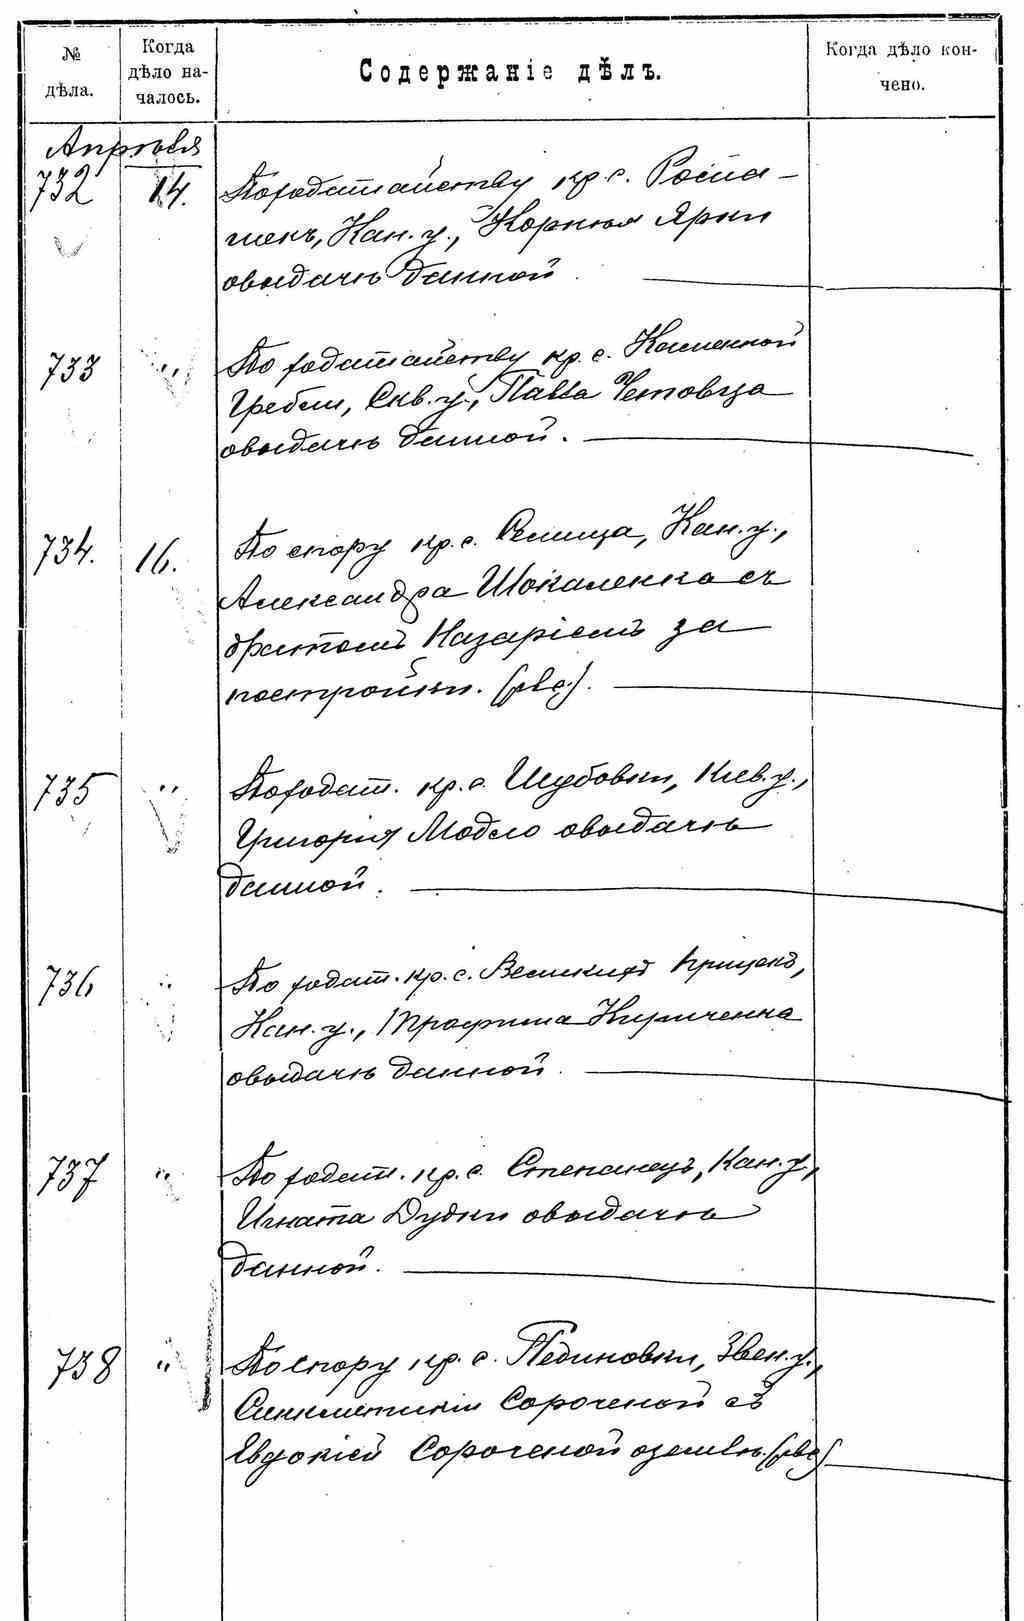 № дѣла.
Когда дѣло на-
чалось.
Содержаніе дѣлъ.
Когда дѣло кон-
чено.
Апрѣля
732 14. По ходатайству кр. с. Поста-
некъ, Кан. у., Корнія Ярки
о выдачѣ данной.
733 " По ходатайству кр. с. Каменной
Гребли, Скв. у., Павла Четовца
о выдачѣ данной.
734. 16. По спору кр. с. Селища, Кан. у.,
Александра Шокаленка съ
братомъ Назаріемъ за
постройки. (рвс).
735 " По ходат. кр. с. Шубовки, Кіев. у.,
Григорія Модло о выдачѣ
данной.
736 " По ходат. кр. с. Великихъ Прицекъ,
Кан. у., Трофима Кириченка
о выдачѣ данной.
737 " По ходат. кр. с. Степанецъ, Кан. у.,
Игната Дудки о выдачѣ
данной.
738 " По спору кр. с. Пединовки, Звен. у.,
Синклитикіи Сороченой съ
Евдокіей Сороченой о землѣ. (рвс)